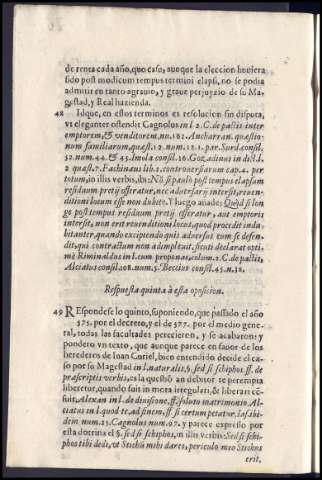 de renta cada año, quo casu, aunque la eleccion huuiera
sido post modicum tempus termini elapsi, no se podia
admitir en tanto agrauio, y graue perjuyzio de su Ma-
gestad, y Real hazienda.
48 Idque, en estos terminos es resolucion sin disputa,
vt eleganter ostendit Cagnolus in l. 2. C. de pactis inter
emptorem, & venditorem, nu. 181. Ancharran. quæstio-
num familiarum, quæst. 12. num. 12. 1. par. Surd. consil.
32. num. 44. & 45. Imola consil. 26. Goz. adinus in dict. l.
2 quæst. 7. Fachinæus lib. 2. controuersiarum cap. 4. per
totum, in illis verbis, ibi: Nã si paulo post tempus elapsum
residuum pretij offeratur, nec aduersarij intersit, reuen-
ditioni locum esse non dubito. Y luego añade: Quòd si lon
ge post tempus residuum pretij offeratur, aut emptoris
intersit, non erit reuenditioni locus, quod procedit indu-
bitanter, quando excipiendo quis aduersus eum se defen-
dit, qui contractum non adimpleuit, sicuti declarat opti-
mè Riminaldus in l. cum proponas, colum. 2. C. de pactis,
Alciatus consil. 408. num. 5. Beccius consil. 45. n. 38.
Respuesta quinta à esta oposicion.
49 REspondese lo quinto, suponiendo, que passado el año
575. por el decreto, y el de 577. por el medio gene-
ral, todas las facultades perecieron, y se acabaron: y
pondero vn texto, que aunque parece en fauor de los
herederos de Iuan Curiel, bien entendido decide el ca-
so por su Magestad in l. naturalis, §. sed si schiphos. ff. de
præscriptis verbis, es la questiõ an debitor te perempta
liberetur, quando fuit in mora irregulari, & liberari cẽ-
suit, Alexan. in l. de diuisione, ff. soluto matrimonio. Al-
ciatus in l. quod te, ad finem, ff. si certum petatur. Ias. ibi-
dem num. 25. Cagnolus num. 97. y parece expresso por
esta doctrina el §. sed si schiphos, in illis verbis: Sed si schi-
phos tibi dedi, vt Stichũ mihi dares, periculo meo Stichus
erit,